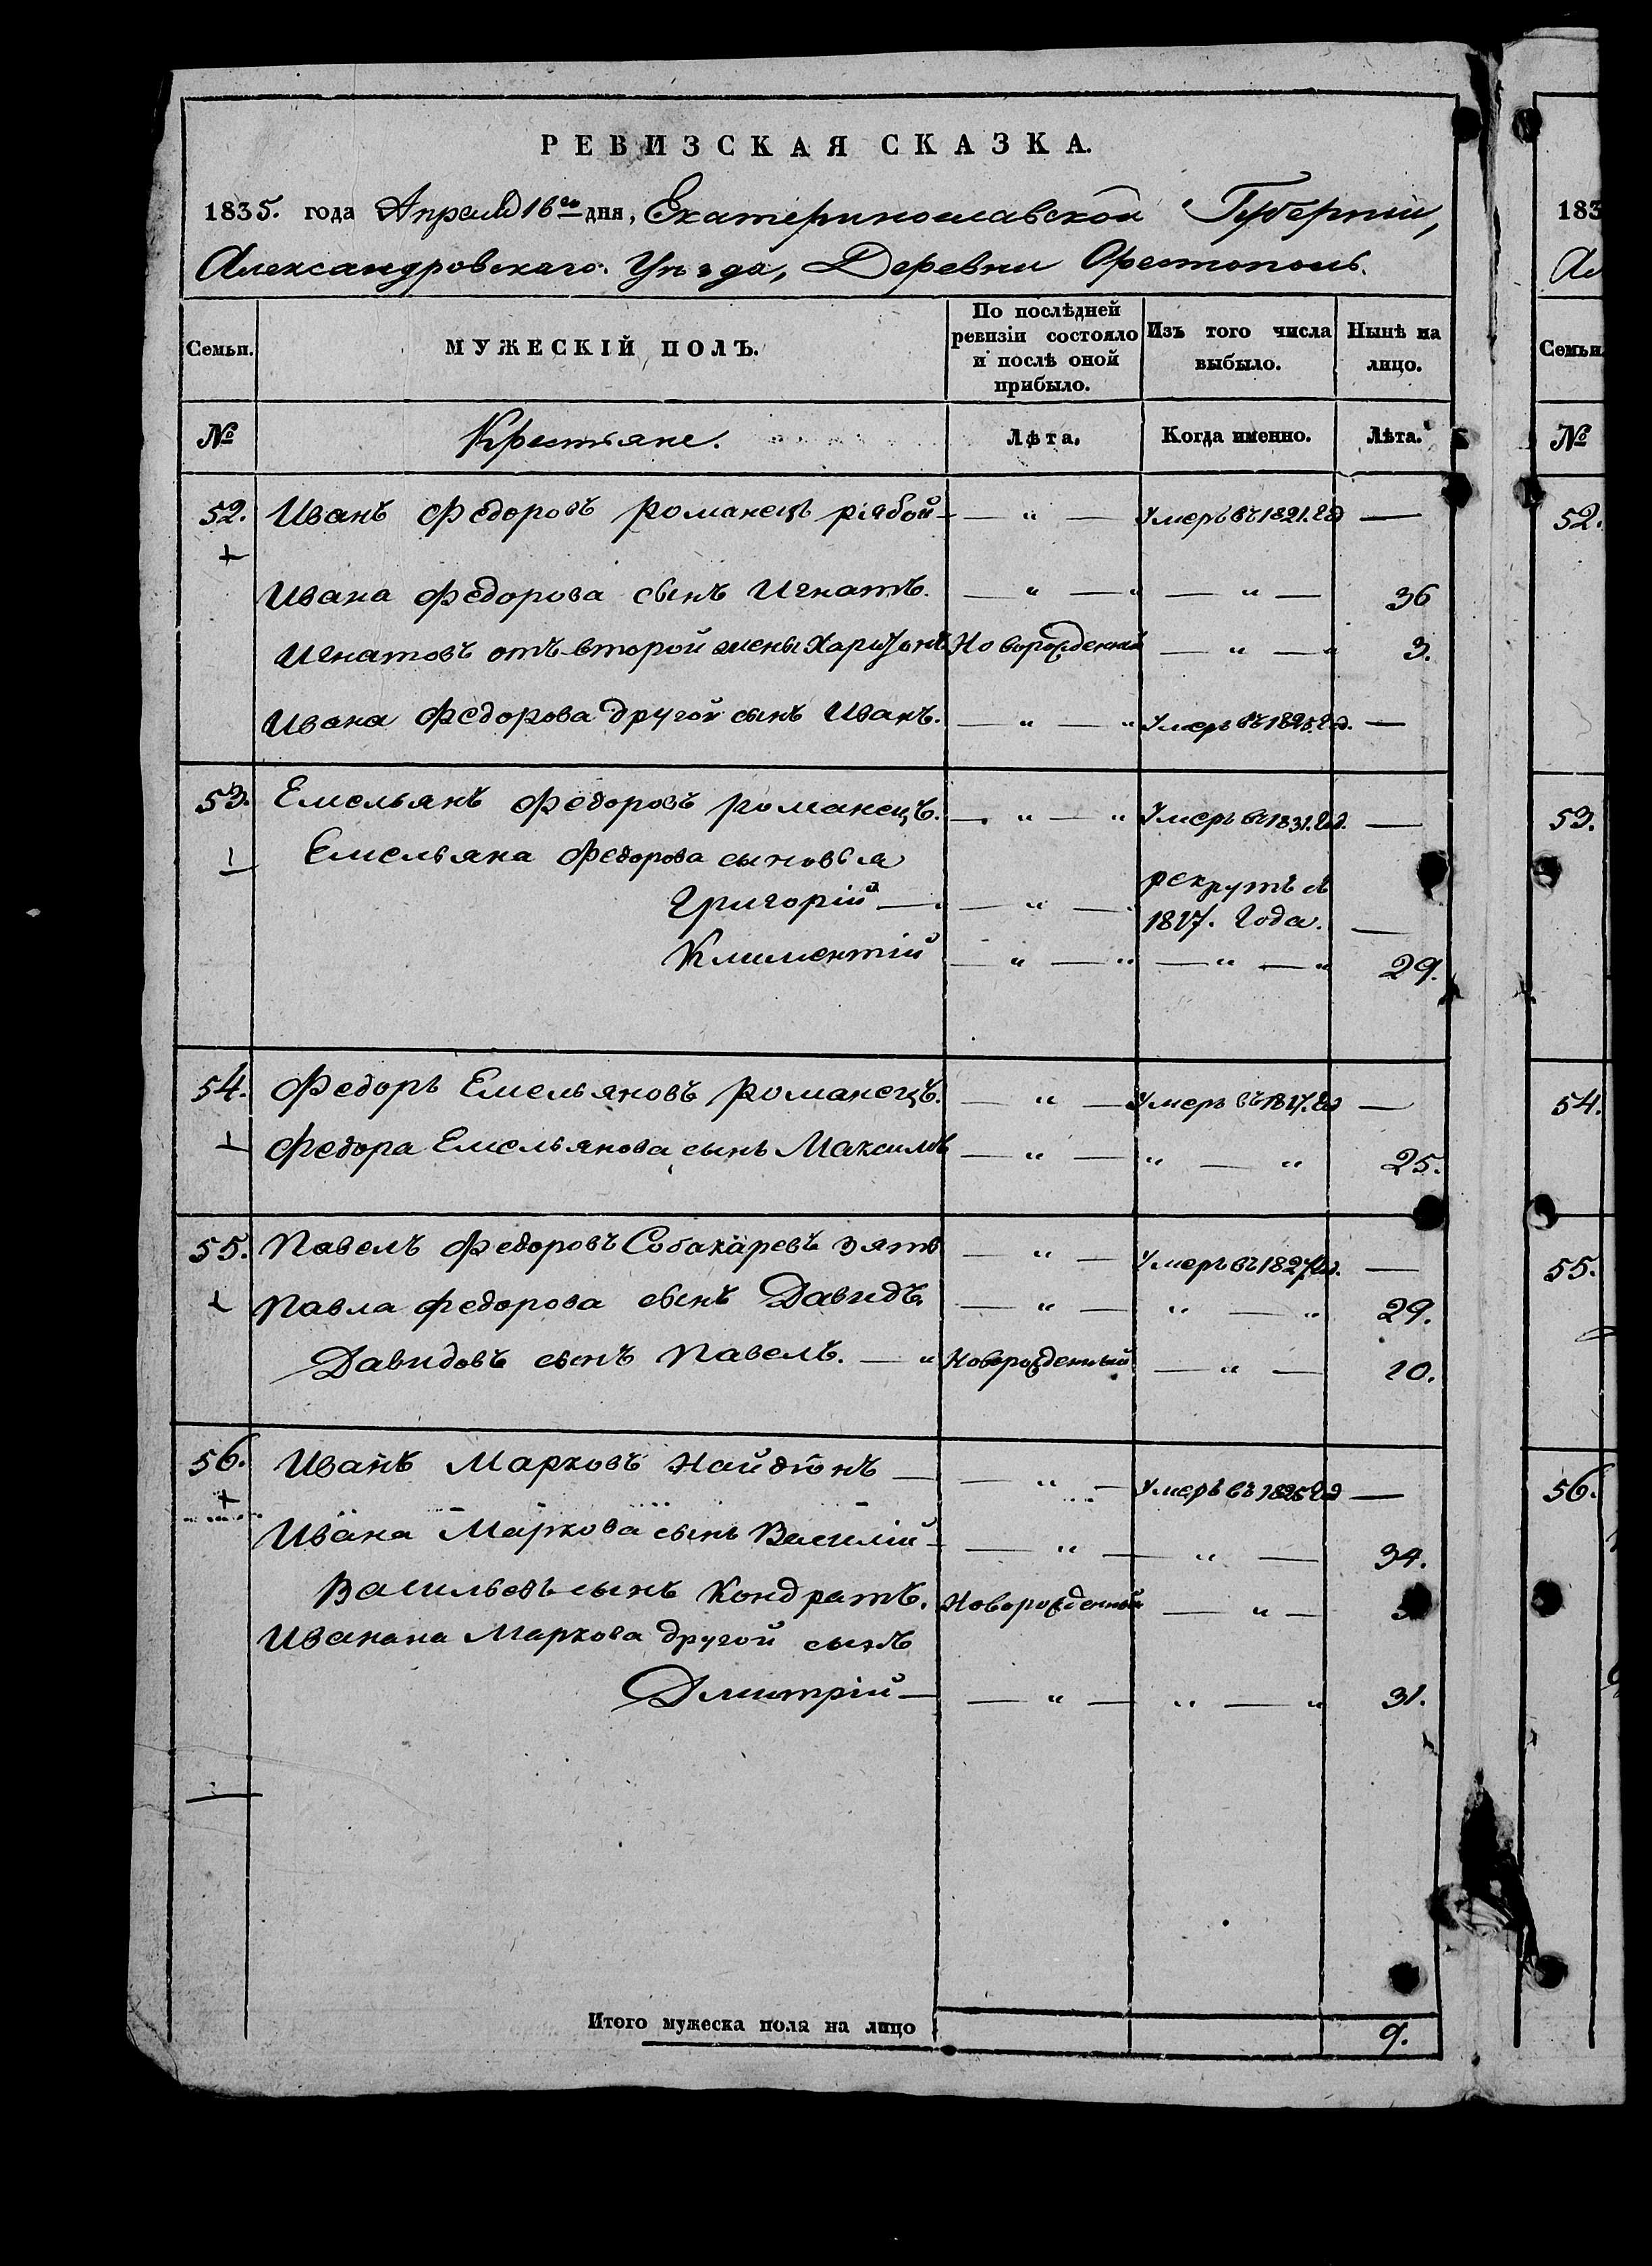 РЕВИЗСКАЯ СКАЗКА.
1835. года Апреля 16го дня, Екатеринославской Губернии,
Александровскаго Уезда, Деревни Орестополь.
Семьи. МУЖЕСКІЙ ПОЛЪ. По послѣдней ревизіи состояло и послѣ оной прибыло. Изъ того числа выбыло. Нынѣ на лицо.
№ Крестьяне. Лѣта. Когда именно. Лѣта.
52. Иванъ Федоровъ романецъ рябой — — " — Умеръ въ 1821. год —
Ивана Федорова сынъ Игнатъ. — " — " — " — 36
Игнатовъ отъ второй жены Харитонъ Новорожденный — " — " 3.
Ивана Федорова другой сынъ Иванъ. — " — " Умеръ въ 1825. год. —
53. Емельянъ Федоровъ романецъ. — " — " Умеръ въ 1831. год. —
Емельяна Федорова сыновья
Григорій — — " — рекрутъ съ 1827. года. —
Климентій — " — " — " — " 29.
54. Федоръ Емельяновъ романецъ. — " — Умеръ въ 1827. год —
Федора Емельянова сынъ Максимъ — " — " — " 25.
55. Павелъ Федоровъ Собакаревъ зять — " — Умеръ въ 1827 год. —
Павла Федорова сынъ Давидъ. — " — " — " 29.
Давидовъ сынъ Павелъ. — " Новорожденный — " — 10.
56. Иванъ Марковъ Найдіонъ — — " — Умеръ въ 1825 год —
Ивана Маркова сынъ Василій — — " — " — 34.
Васильевъ сынъ Кондратъ. Новорожденный — " —
Иванана Маркова другой сынъ
Дмитрій — — " — " — " 31.
Итого мужеска пола на лицо 9.
183
Ал
Семьи
№
52.
53.
54.
55.
56.